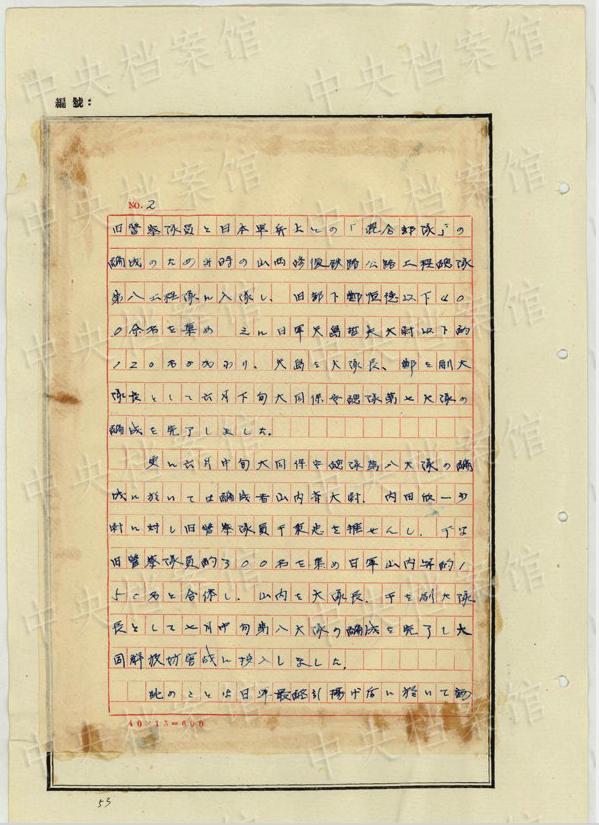 編號：
NO. 2
旧警察隊員と日本軍兵士との「混合部隊」の
編成のため当時の山西修復鉄路公路工程総隊
第八工程隊に入隊し、旧部下鄭恒徳以下400
余名を集め 之に日軍
120名が加わり、 を大隊長、鄭を副大
隊長として六月下旬大同保安総隊第七大隊の
編成を完了しました。
更に六月中旬大同保安総隊第八大隊の編
成に於いては編成者山内 大尉、内田 一少
尉に対し旧警察隊員于 忠を推せんし、于は
旧警察隊員約300名を集め日軍山内 約1
50名と合体し、山内を大隊長、于を副大隊
長として七月中旬第八大隊の編成を完了し大
同解放 に投入しました。
此のことは日軍最終引揚げ后に於いて
40×15=600
53
中央档案馆